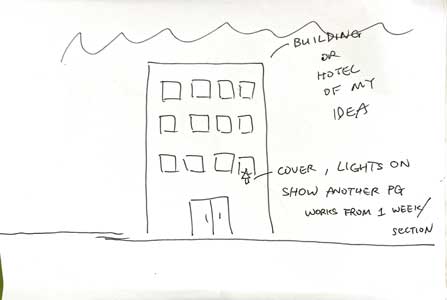 BUILDING
OR
HOTEL
OF MY
IDEA
COVER, LIGHTS ON
SHOW ANOTHER PG
WORKS FROM 1 WEEK/
SECTION